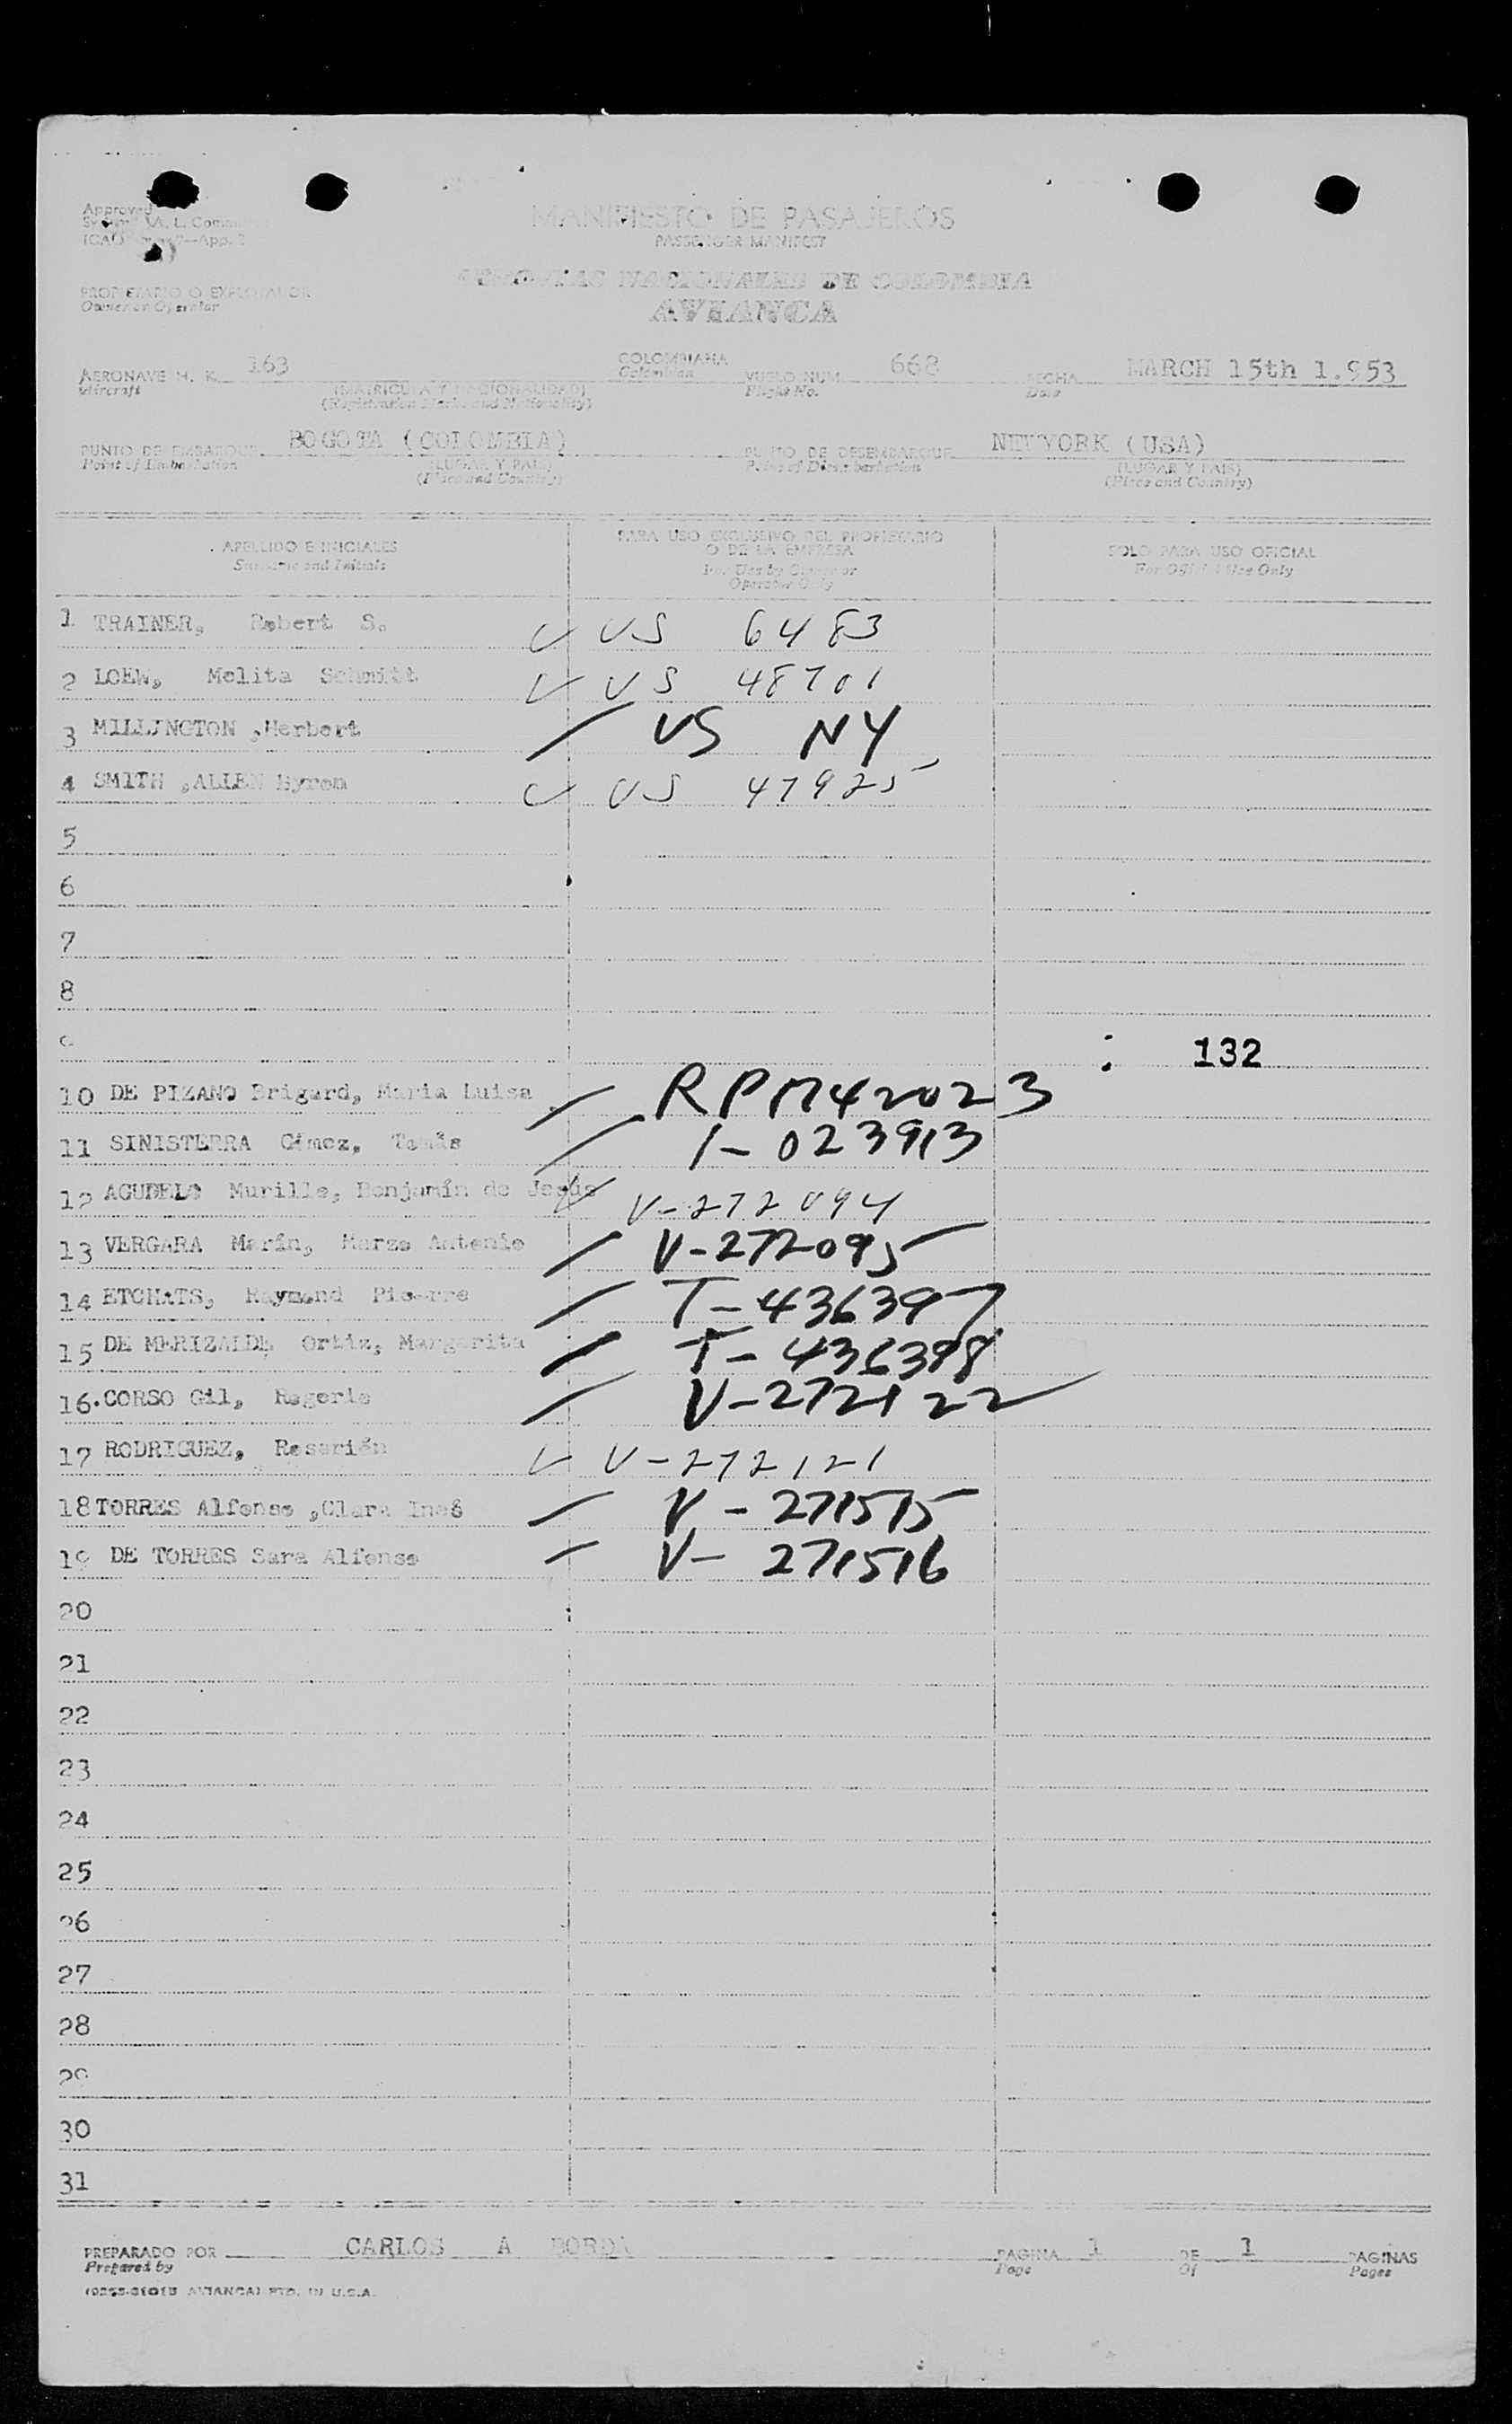 Approved
ICAO
MANIFIESTO DE PASAJEROS
PASSENGER MANIFEST
AEROVIAS NACIONALES DE COLOMBIA
AVIANCA
PROPIETARIO O EXPLOTADOR
Owner or Operator
AERONAVE H. K. 163 COLOMBIANA VUELO NUM. 668 FECHA MARCH 15th 1.953
Aircraft (MATRICULA Y NACIONALIDAD) Colombian Flight No. Date
(Registration Marks and Nationality)
PUNTO DE EMBARQUE BOGOTA (COLOMBIA) PUNTO DE DESEMBARQUE NEWYORK (USA)
Point of Embarkation (LUGAR Y PAIS) Point of Disembarkation (LUGAR Y PAIS)
(Place and Country) (Place and Country)
APELLIDO E INICIALES PARA USO EXCLUSIVO DEL PROPIETARIO O DE LA EMPRESA SOLO PARA USO OFICIAL
Surname and Initials For Use by Owner or Operator Only For Official Use Only
1 TRAINER, Robert S. US 6483
2 LOEW, Melita Schmitt US 48701
3 MILLINGTON ,Herbert US NY
4 SMITH ,ALLEN Byron US 47925
5
6
7
8
9 132
10 DE PIZANO Brigard, Maria Luisa RPM42023
11 SINISTERRA Gómez, Tomás 1-023913
12 AGUDELO Murillo, Benjamín de Jesús V-272094
13 VERGARA Marín, Marzo Antonio V-272095
14 ETCHATS, Raymond Pieerre T-436397
15 DE MERIZALDE Ortiz, Margarita T-436398
16.CORSO Gil, Rogerio V-272122
17 RODRIGUEZ, Rosarión V-272121
18 TORRES Alfonso ,Clara Inés V-271515
19 DE TORRES Sara Alfonso V-271516
20
21
22
23
24
25
26
27
28
29
30
31
PREPARADO POR CARLOS A BORDA PAGINA 1 DE 1 PAGINAS
Prepared by Page Of Pages
AVIANCA) PTD. IN U.S.A.